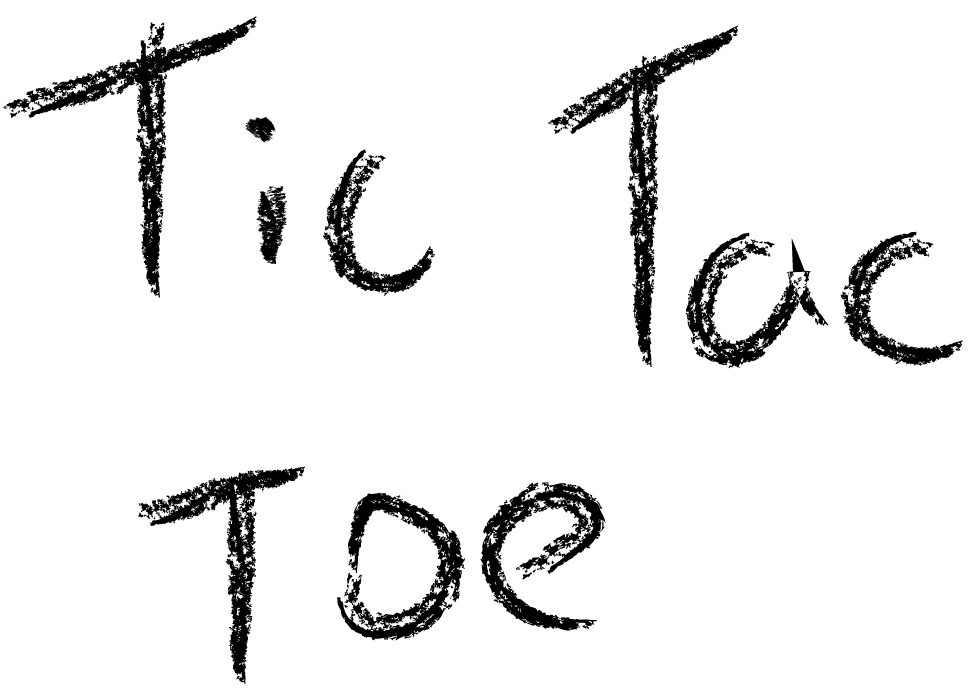 Tic Tac
Toe